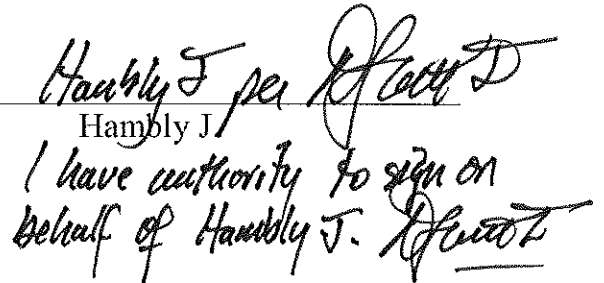 Hambly J per DJ Scott J
Hambly J
I have authority to sign on
behalf of Hambly J.